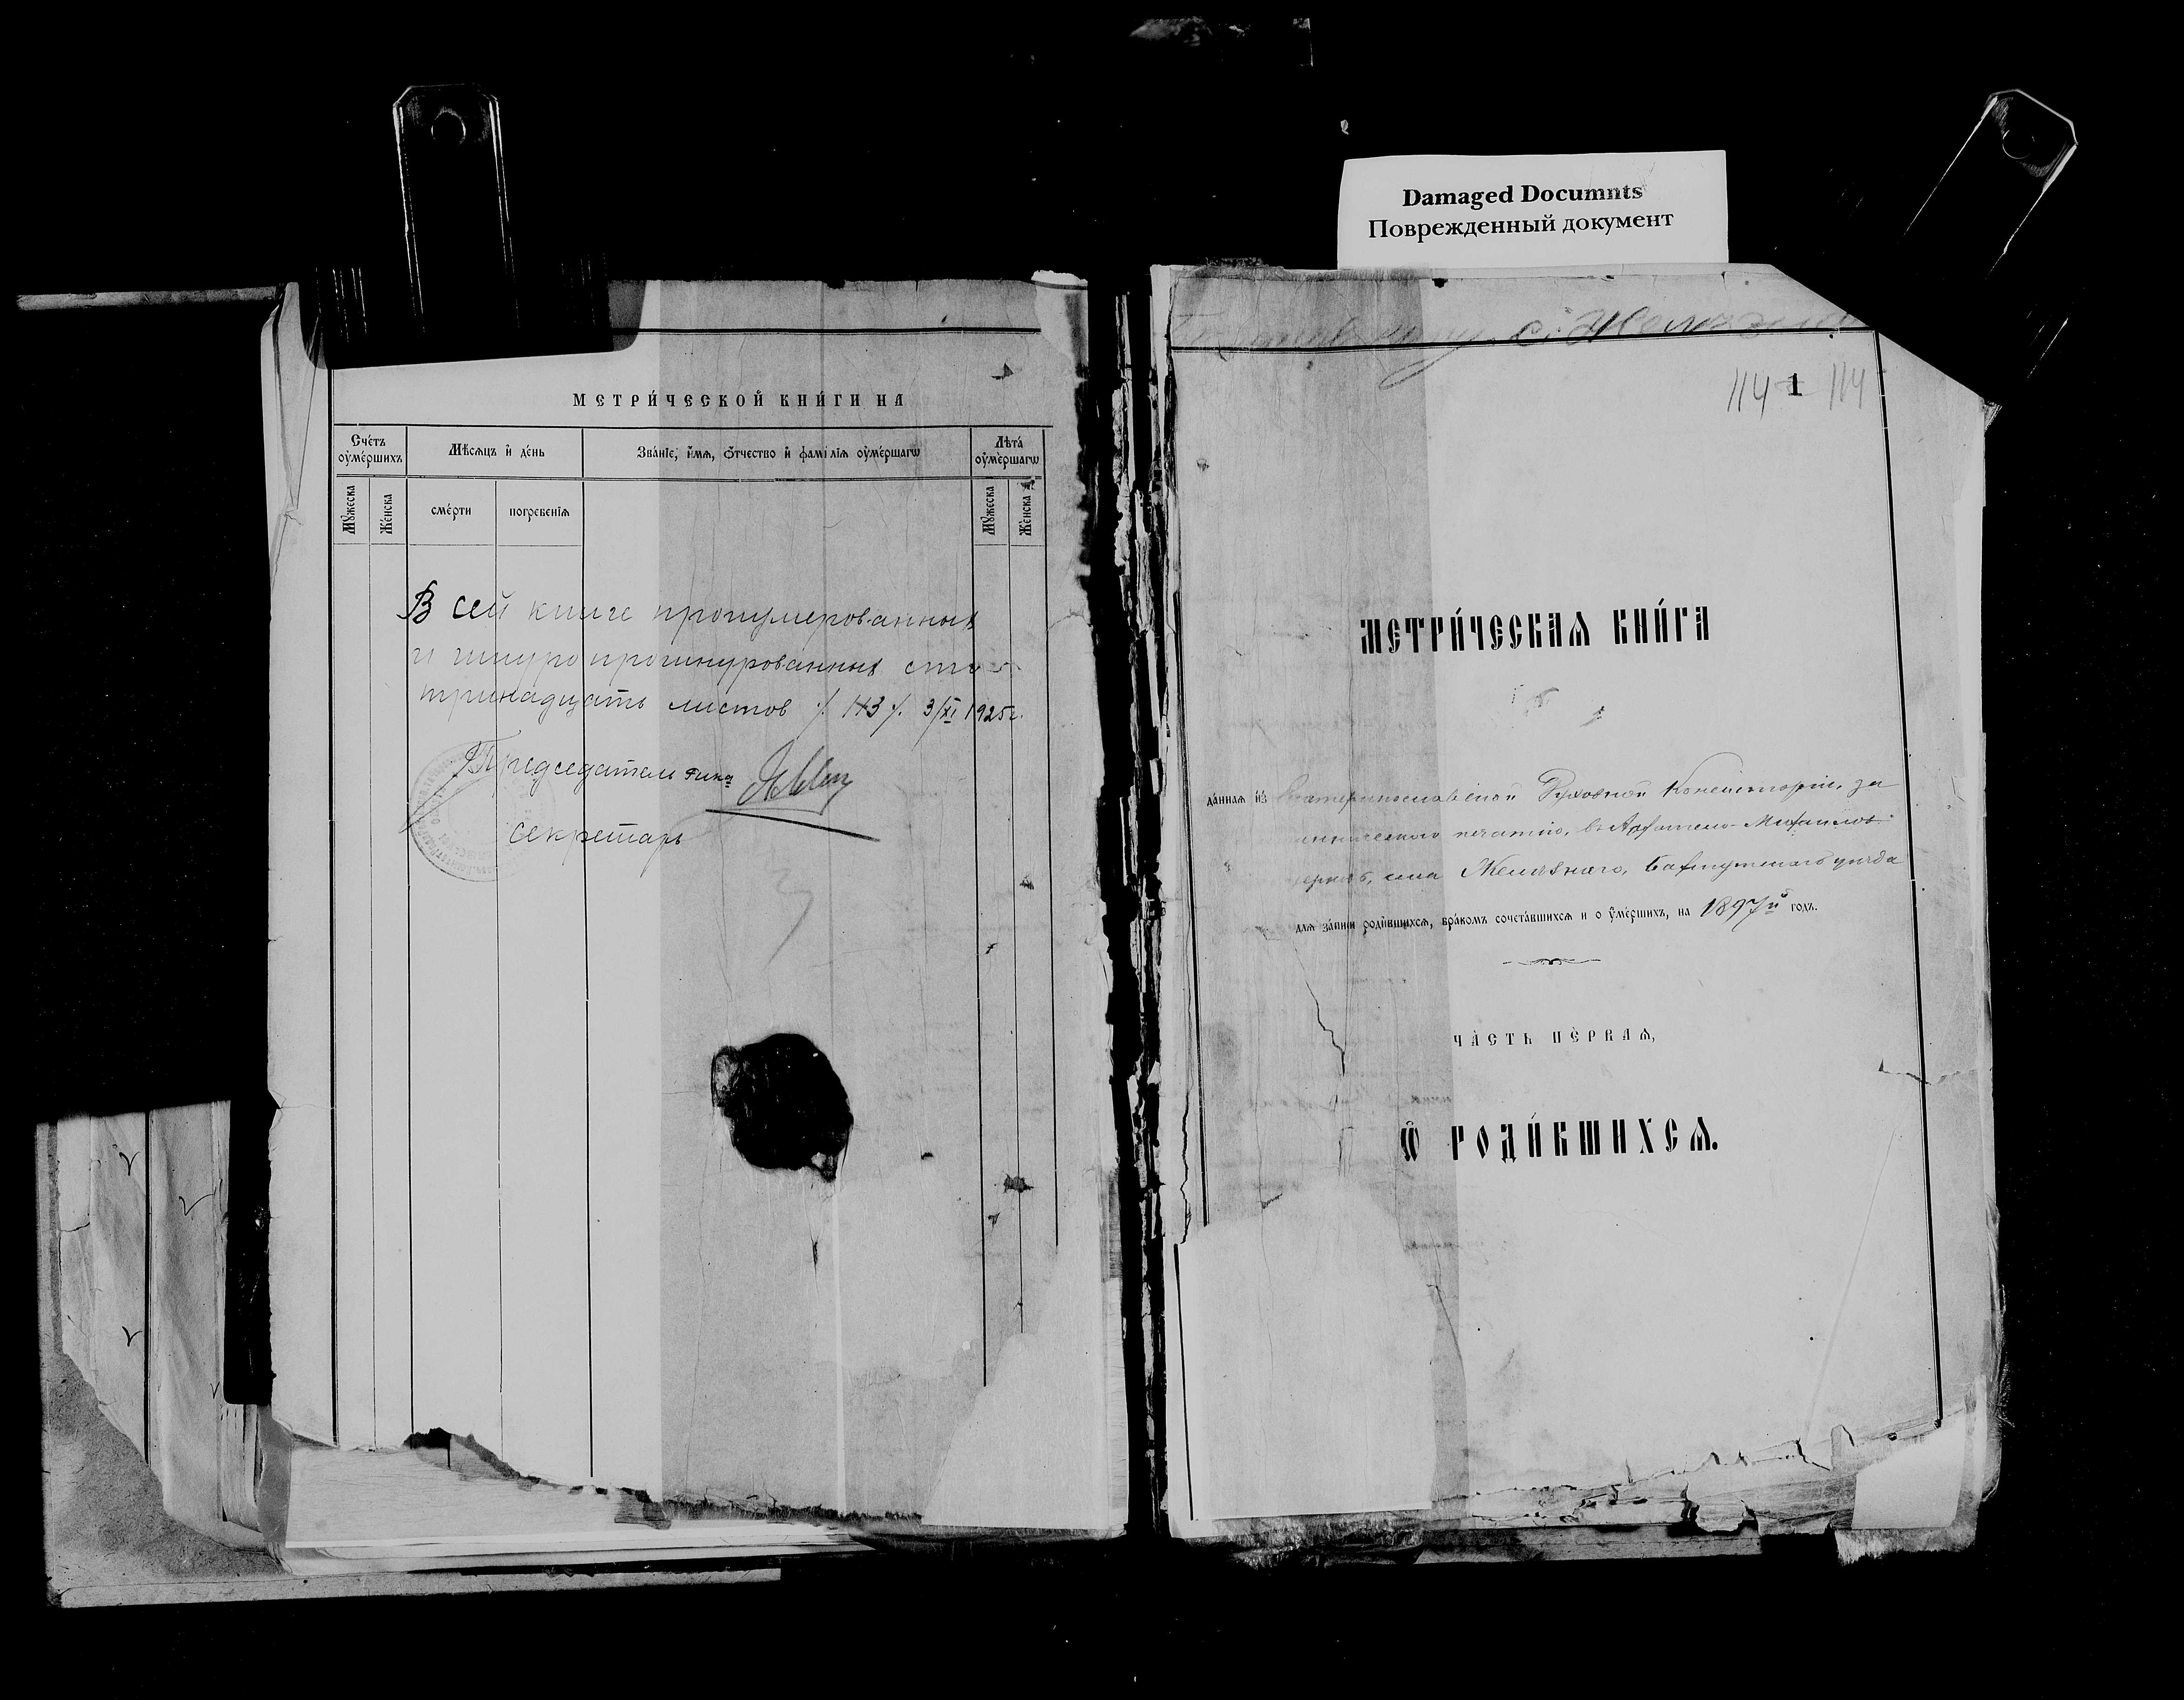 Damaged Documnts
Поврежденный документ
МЕТРИ́ЧЕСКОЙ КНИ́ГИ НА
Сче́тъ ᲂу҆ме́ршихъ
Мѣ́сѧцъ и҆ де́нь
Зва́нїе, и҆́мѧ, ѻ҆́тчество и҆ фамі́лїѧ ᲂу҆ме́ршагѡ
Лѣта̀ ᲂу҆ме́ршагѡ
Мꙋ́жеска
Же́нска
сме́рти
погребе́нїѧ
Мꙋ́жеска
Же́нска
В сей книге пронумерованных
и шнуро прошнурованных сто
тринадцать листов /. 113 /. 3/XI 1925г.
Председатель Рика
секретарь
с. Железное
114 1 114
МЕТРИ́ЧЕСКАѦ КНИ́ГА
да́ннаѧ и҆з̾ Екатеринославской Духовной Консисторіи, за
печатію, въ Архангело-Михаилов.
села Желѣзнаго, Бахмутскаго уѣзда
длѧ за́писи роди́вшихсѧ, бра́комъ сочета́вшихсѧ и о ᲂу҆ме́ршихъ, на 1897й годъ.
ЧА́СТЬ ПЕ́РВАѦ,
Ѽ РОДИ́ВШИХСѦ.